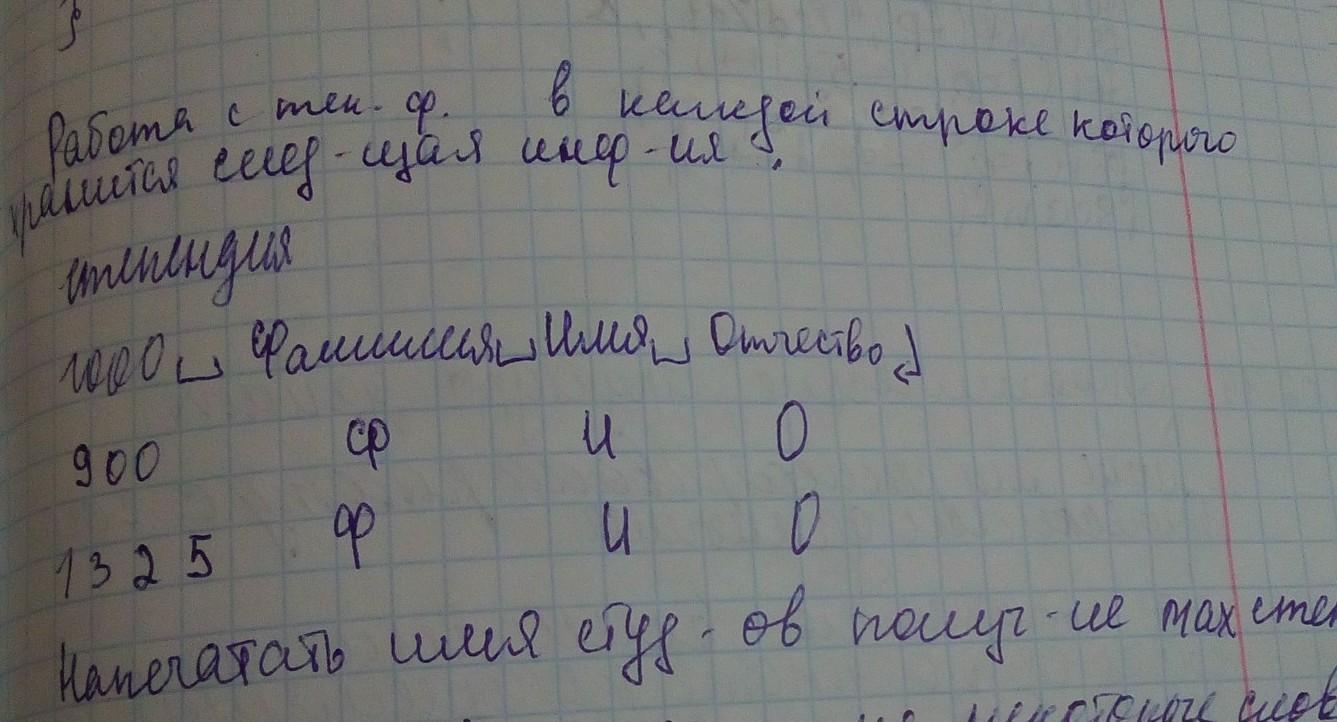 }
Работа с тек. ф. в каждой строке которого
хранится след-щая инф-ия :
стипендия
1000 ␣ Фамилия ␣ Имя ␣ Отчество ↵
900 Ф И О
1325 Ф И О
Напечатать имя студ-ов получ-ие max степ
некоторые слов